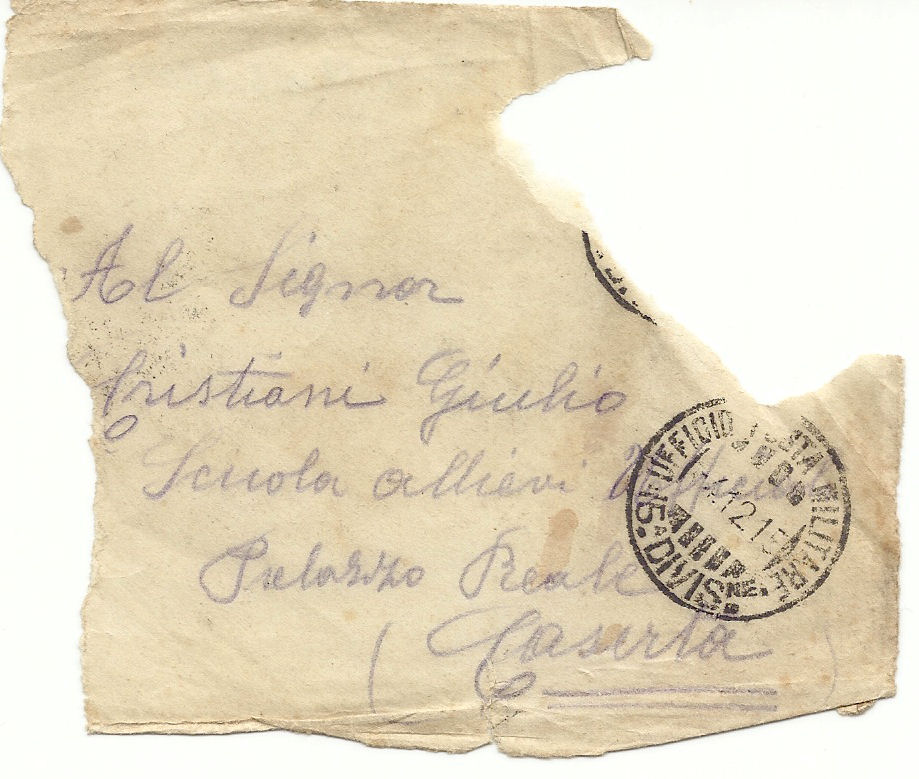 Al Signor
Cristiani Giulio
Scuola allievi
Palazzo Reale
(Caserta)
UFFICIO POSTA MILITARE
5ª DIVISNE.